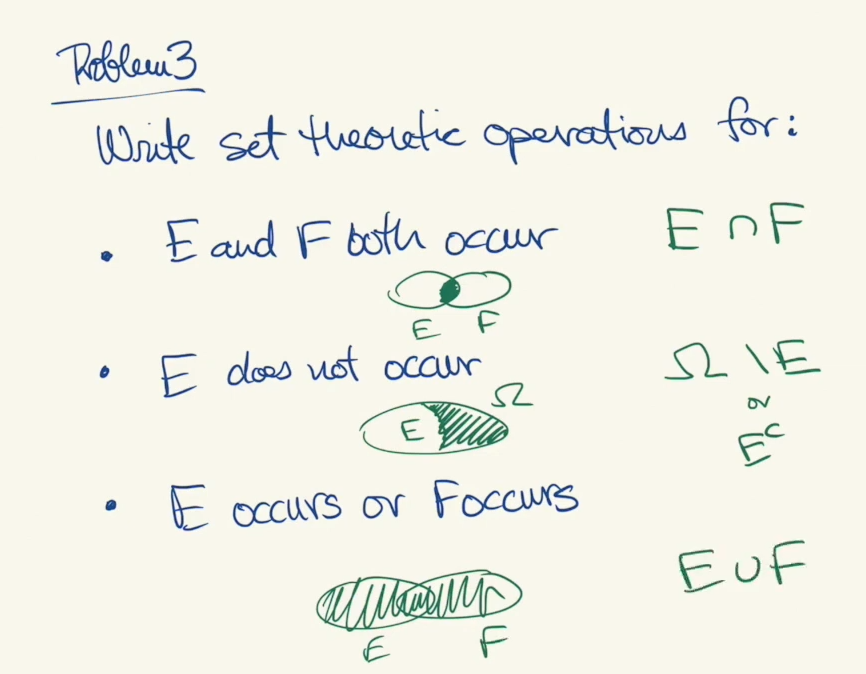 Problem 3
Write set theoretic operations for:
• E and F both occur E ∩ F
E F
• E does not occur Ω \ E
or
E Ω
Eᶜ
• E occurs or F occurs
E ∪ F
E F